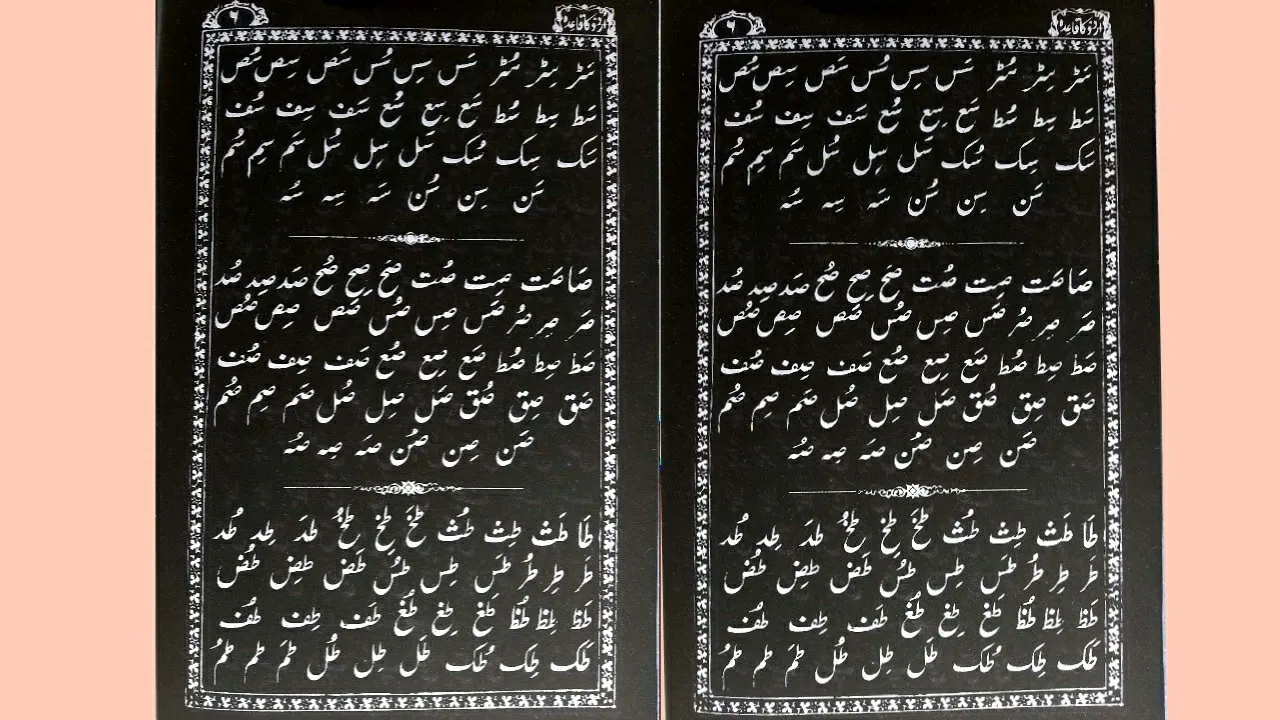 اردو کا قاعدہ ۶
سَڑ سِڑ سُڑ سَس سِس سُس سَص سِص سُص
سَط سِط سُط سَع سِع سُع سَف سِف سُف
سَک سِک سُک سَل سِل سُل سَم سِم سُم
سَن سِن سُن سَہ سِہ سُہ
صَا صَت صِت صُت صَح صِح صُح صَد صِد صُد
صَر صِر صُر صَس صِس صُس صَص صِص صُص
صَط صِط صُط صَع صِع صُع صَف صِف صُف
صَق صِق صُق صَل صِل صُل صَم صِم صُم
صَن صِن صُن صَہ صِہ صُہ
طَا طَث طِث طُث طَخ طِخ طُخ طَد طِد طُد
طَر طِر طُر طَس طِس طُس طَض طِض طُض
طَظ طِظ طُظ طَغ طِغ طُغ طَف طِف طُف
طَک طِک طُک طَل طِل طُل طَم طِم طُم
اردو کا قاعدہ ۶
سَڑ سِڑ سُڑ سَس سِس سُس سَص سِص سُص
سَط سِط سُط سَع سِع سُع سَف سِف سُف
سَک سِک سُک سَل سِل سُل سَم سِم سُم
سَن سِن سُن سَہ سِہ سُہ
صَا صَت صِت صُت صَح صِح صُح صَد صِد صُد
صَر صِر صُر صَس صِس صُس صَص صِص صُص
صَط صِط صُط صَع صِع صُع صَف صِف صُف
صَق صِق صُق صَل صِل صُل صَم صِم صُم
صَن صِن صُن صَہ صِہ صُہ
طَا طَث طِث طُث طَخ طِخ طُخ طَد طِد طُد
طَر طِر طُر طَس طِس طُس طَض طِض طُض
طَظ طِظ طُظ طَغ طِغ طُغ طَف طِف طُف
طَک طِک طُک طَل طِل طُل طَم طِم طُم